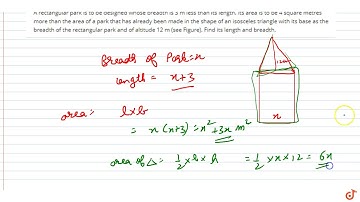 A rectangular park is to be designed whose breadth is 3 m less than its length. Its area is to be 4 square metres
more than the area of a park that has already been made in the shape of an isosceles triangle with its base as the
breadth of the rectangular park and of altitude 12 m (see Figure). Find its length and breadth.
Breadth of Park = x
length = x+3
area: l×b
= x(x+3) = x²+3x m²
area of Δ = 1/2 × b × h = 1/2 × x × 12 = 6x
12m
x